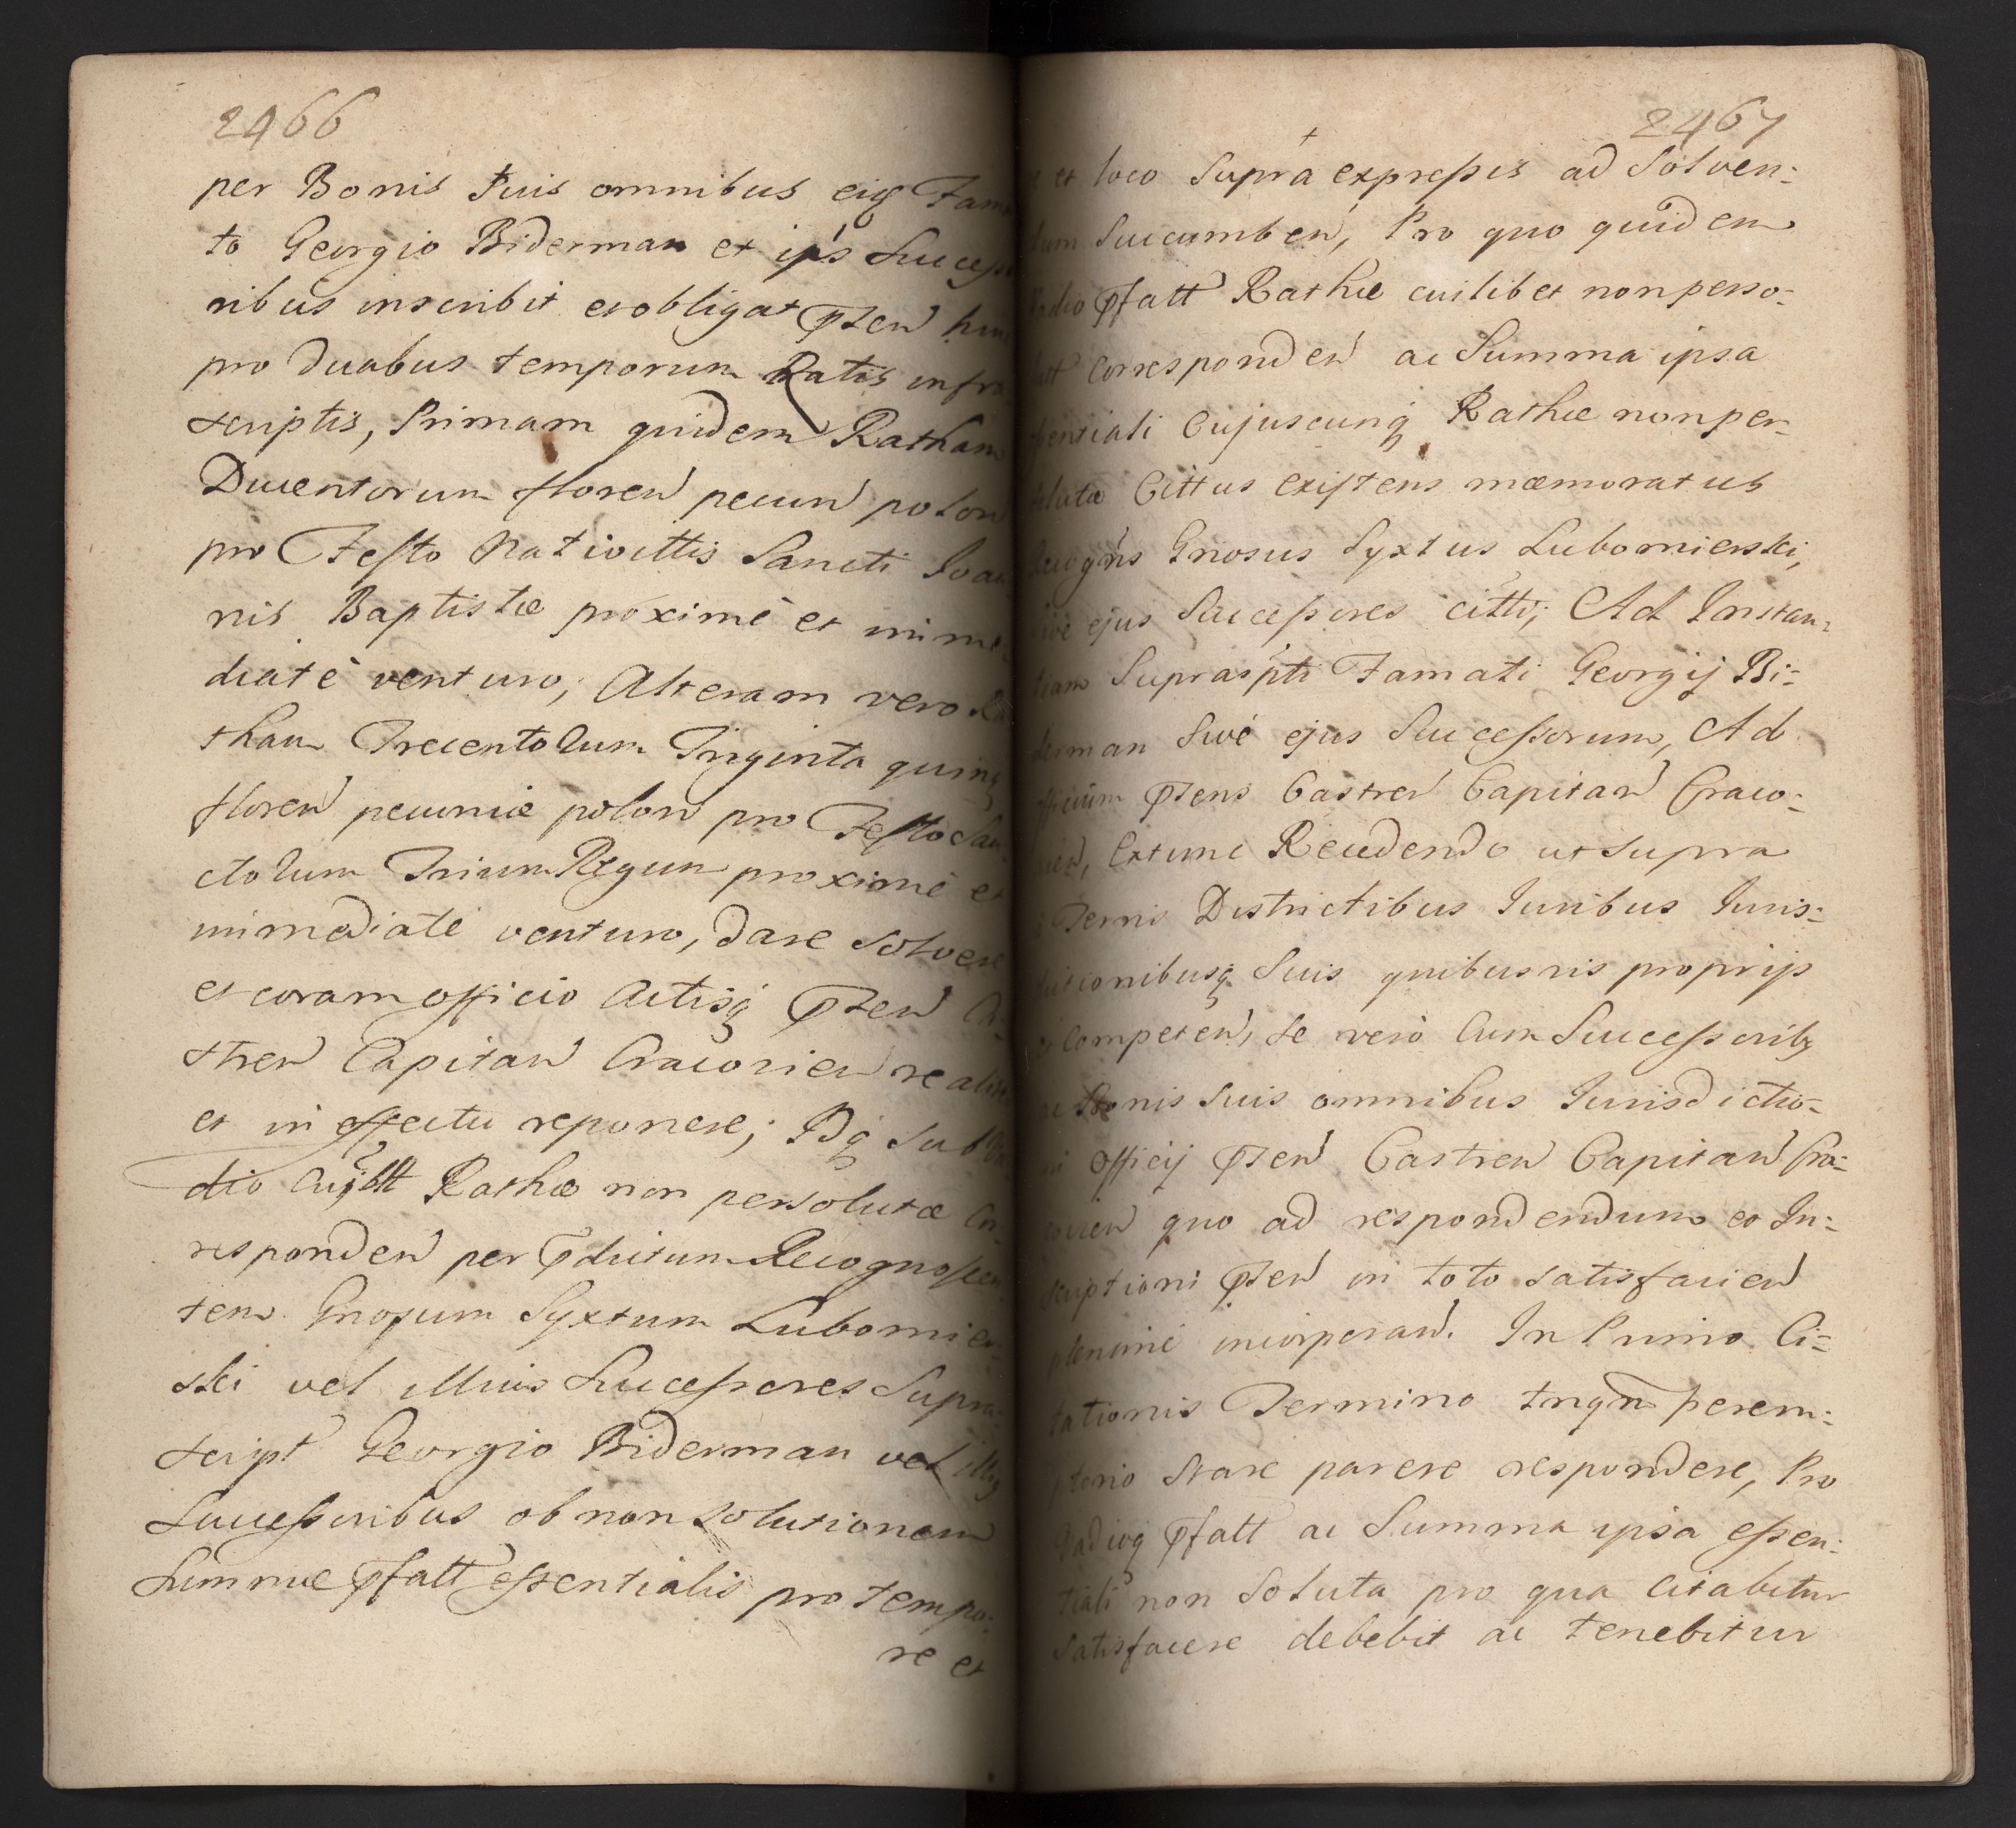 2466
per Bonis suis omnibus eiꝗ Fama
to Georgio Biderman et ip̃s Succeſso
ribus inscribit et obligat pñteñ hinc
pro duabus temporum Ratis infra
scriptis, Primam quidem Ratham
Ducentorum floreñ pecuñ poloñ
pro Feſto Nativittis Sancti Joan
nis Baptistæ proximè et imme
diatè venturo; Alteram vero Ra
tham Trecentorum Triginta quinꝗ
floreñ pecuniæ poloñ pro Feſto San
ctorum Trium Regum proximè et
immediatè venturo, dare solvere
et coram officio Actisꝗ pñteñ Ca-
streñ Capitañ Cracovieñ realiter
et in effectu reponere; Idꝗ sub Va
dio cuj̃bltt Rathæ non persolutæ Cor-
respondeñ per p̃dictum Recognoſcen
tem Gnosum Syxtum Lubomier-
ski vel illius Succeſsores Supra-
script Georgio Biderman vel illiꝗ
Succeſsoribus ob non solutionem
Summæ p̃fatt eſsentialis pro tempo-
re et
2467
re et loco Supra expreſsis ad Solven:
dum Succumbeñ, Pro quo quidem
Vadio p̃fatt Rathæ cuilibet non perso-
lutt correspondeñ ac Summa ipsa
eſsentiali Cujuscunꝗ Rathæ non per-
solutæ Cittus exiſtens mæmoratus
Recogñs Gnosus Syxtus Lubomierski,
sive ejus Succeſsores citti; Ad Instan-
tiam Suprasp̃ti Famati Georgij Bi-
derman sivè ejus Succeſsorum, Ad
officium pñtens Castreñ Capitañ Craco-
vieñ, Extunc Recedendo ut supra
Terris Districtibus Juribus Juris-
dictionibusꝗ Suis quibusvis proprijs
et Competeñ, se verò Cum Succeſsoribꝗ
ac Bonis suis omnibus Jurisdictio-
ni Officij pñteñ Castreñ Capitañ Cra-
covieñ quo ad respondendum et In-
scriptioni pñteñ in toto satisfacieñ
plenimè incorporañ. In Primo Ci-
tationis Termino tnꝗñ perem-
ptorio Stare parere respondere, Pro
Vadioꝗ p̃fatt ac Summa ipsa eſsen-
tiali non Soluta pro qua citabitur
Satisfacere debebit ac tenebitur